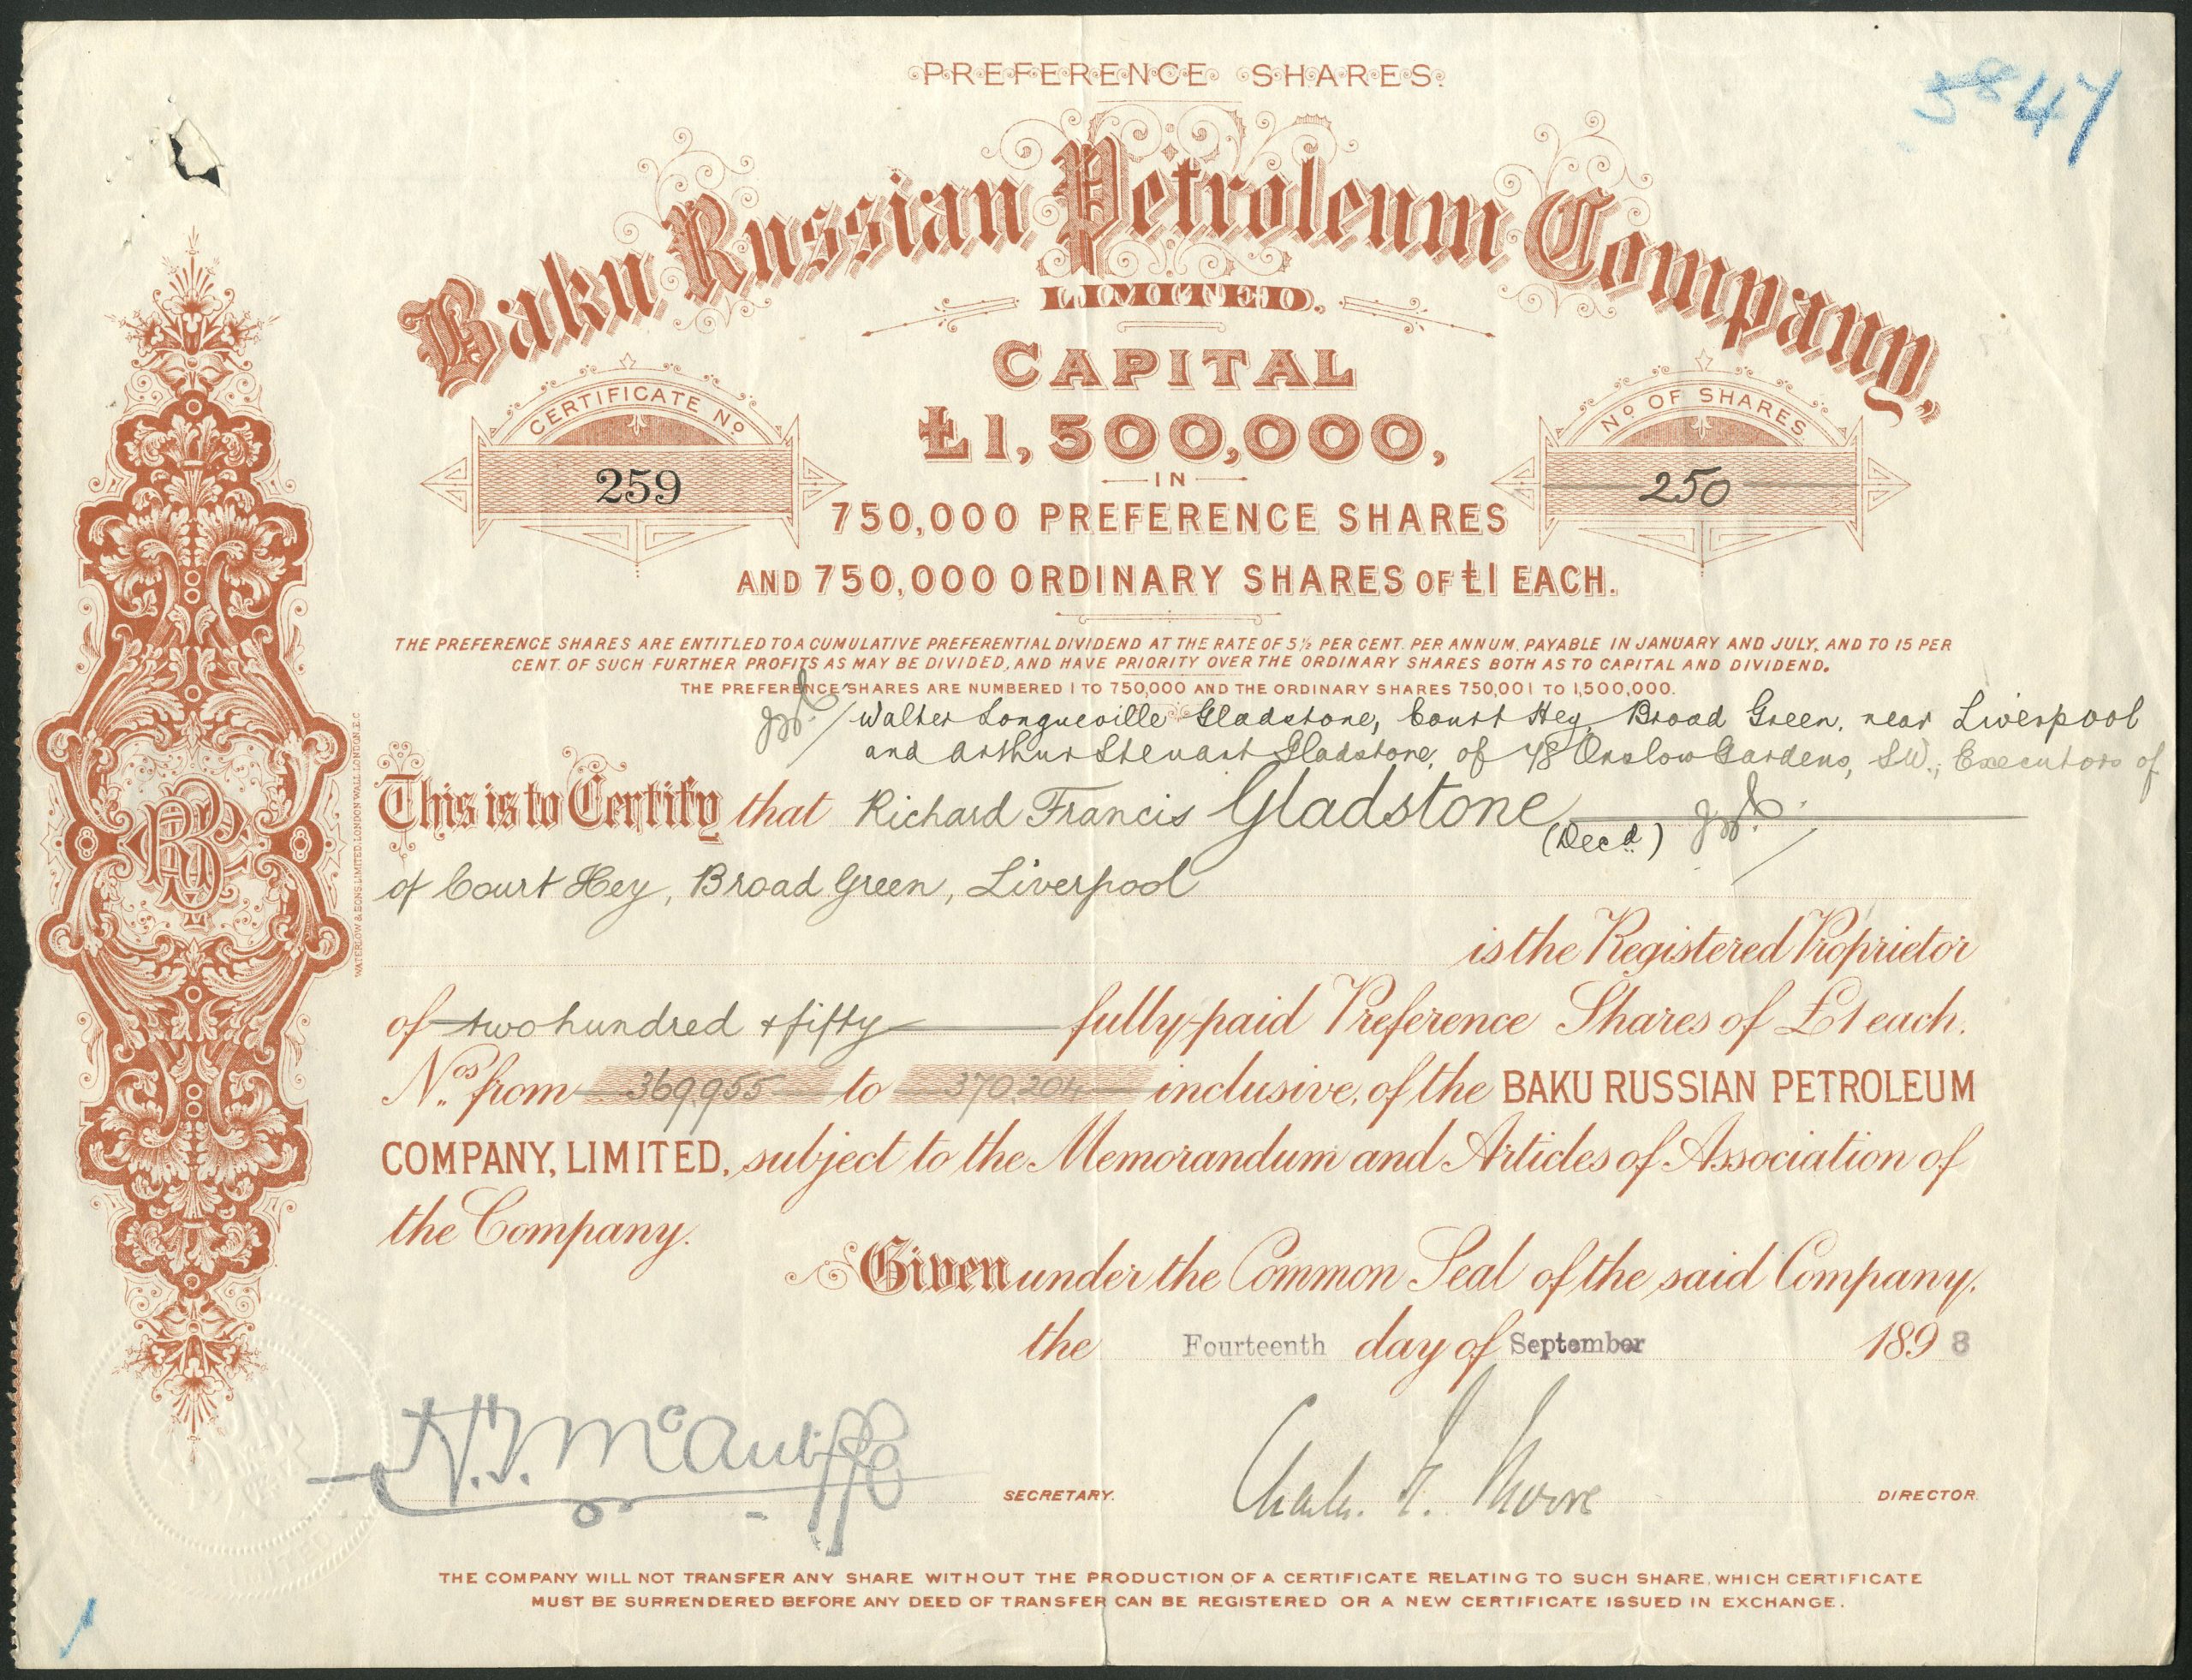 PREFERENCE SHARES.
5847
Baku Russian Petroleum Company,
LIMITED.
CAPITAL
£1,500,000,
CERTIFICATE No
259
No OF SHARES
250
IN
750,000 PREFERENCE SHARES
AND 750,000 ORDINARY SHARES OF £1 EACH.
THE PREFERENCE SHARES ARE ENTITLED TO A CUMULATIVE PREFERENTIAL DIVIDEND AT THE RATE OF 5½ PER CENT. PER ANNUM, PAYABLE IN JANUARY AND JULY, AND TO 15 PER
CENT. OF SUCH FURTHER PROFITS AS MAY BE DIVIDED, AND HAVE PRIORITY OVER THE ORDINARY SHARES BOTH AS TO CAPITAL AND DIVIDEND.
THE PREFERENCE SHARES ARE NUMBERED 1 TO 750,000 AND THE ORDINARY SHARES 750,001 TO 1,500,000.
Walter Longueville Gladstone, Court Hey, Broad Green, near Liverpool
and Arthur Steuart Gladstone, of 48 Onslow Gardens, S.W., Executors of
This is to Certify that Richard Francis Gladstone (Decd)
of Court Hey, Broad Green, Liverpool
is the Registered Proprietor
of two hundred & fifty fully-paid Preference Shares of £1 each.
Nos. from 369,955 to 370,204 inclusive, of the BAKU RUSSIAN PETROLEUM
COMPANY, LIMITED, subject to the Memorandum and Articles of Association of
the Company.
Given under the Common Seal of the said Company,
the Fourteenth day of September 1898
H.T. McAuliffe SECRETARY.
Charles F. Moore DIRECTOR.
THE COMPANY WILL NOT TRANSFER ANY SHARE WITHOUT THE PRODUCTION OF A CERTIFICATE RELATING TO SUCH SHARE, WHICH CERTIFICATE
MUST BE SURRENDERED BEFORE ANY DEED OF TRANSFER CAN BE REGISTERED OR A NEW CERTIFICATE ISSUED IN EXCHANGE.
WATERLOW & SONS, LIMITED, LONDON WALL, LONDON, E.C.